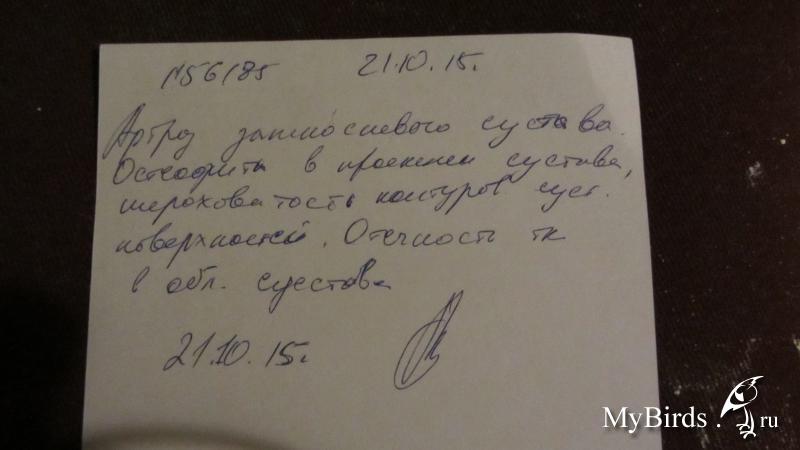 №56185 21.10.15г.
Артроз заплюсневого сустава.
Остеофиты в проекции сустава,
шероховатость контуров суст.
поверхностей. Отечность тк
в обл. сустава
21.10.15г.
MyBirds.ru